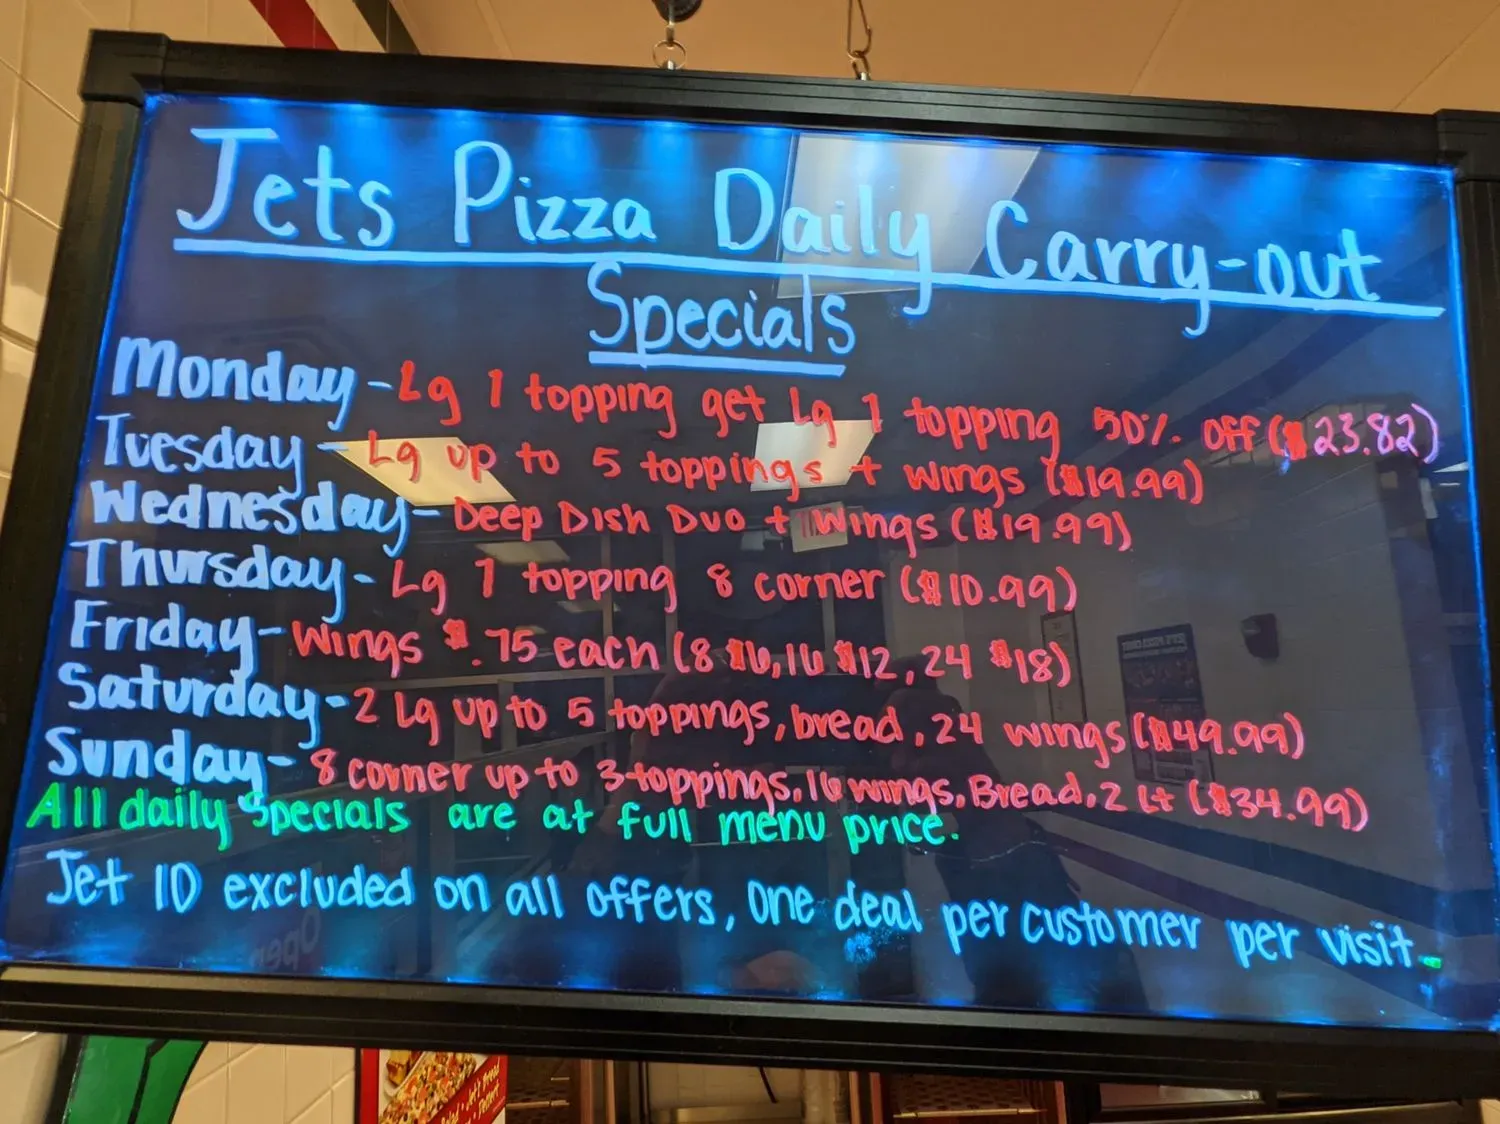 Jets Pizza Daily Carry-out
Specials
Monday - Lg 1 topping get Lg 1 topping 50% off ($23.82)
Tuesday - Lg up to 5 toppings + wings ($19.99)
Wednesday - Deep Dish Duo + Wings ($19.99)
Thursday - Lg 1 topping 8 corner ($10.99)
Friday - Wings $.75 each (8 $6, 16 $12, 24 $18)
Saturday - 2 Lg up to 5 toppings, bread, 24 wings ($49.99)
Sunday - 8 corner up to 3 toppings, 16 wings, Bread, 2 Lt ($34.99)
All daily Specials are at full menu price.
Jet 10 excluded on all offers, One deal per customer per visit.
Open
Salad • Jet's Bread
• Dessert